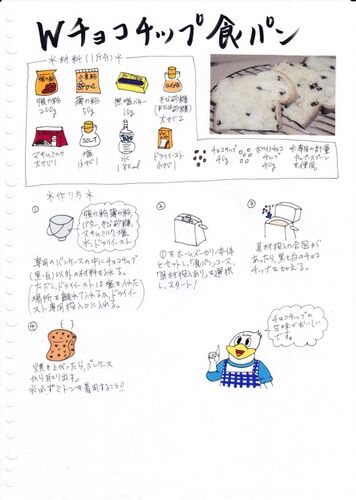 Wチョコチップ食パン
＊材料(1斤分)＊
強力粉
200g
薄力粉
50g
無塩バター
10g
きび砂糖
(または砂糖)
大さじ2
スキムミルク
大さじ1
塩
小さじ1
水
180ml
ドライイースト
小さじ1
チョコチップ
40g
ホワイトチョコ
チップ
40g
※専用の計量
カップ、スプーン
を使用。
＊作り方＊
①
強力粉、薄力粉、
バター、きび砂糖、
スキムミルク、塩、
水、ドライイースト
専用のパンケースの中にチョコチップ
(黒・白)以外の材料を入れる。
ただし、ドライイーストは塩を入れた
場所を離れて入れるか、ドライイー
スト専用投入口に入れる。
②
①をホームベーカリー本体
にセットし、「食パンコース」、
「具材投入あり」を選択
し、スタート!
③
具材投入の合図が
あったら、黒と白のチョコ
チップを加える。
④
焼き上がったら、パンケース
から取り出す。
※必ずミトンを着用すること!!
チョコチップの
甘味でおいしい
です。